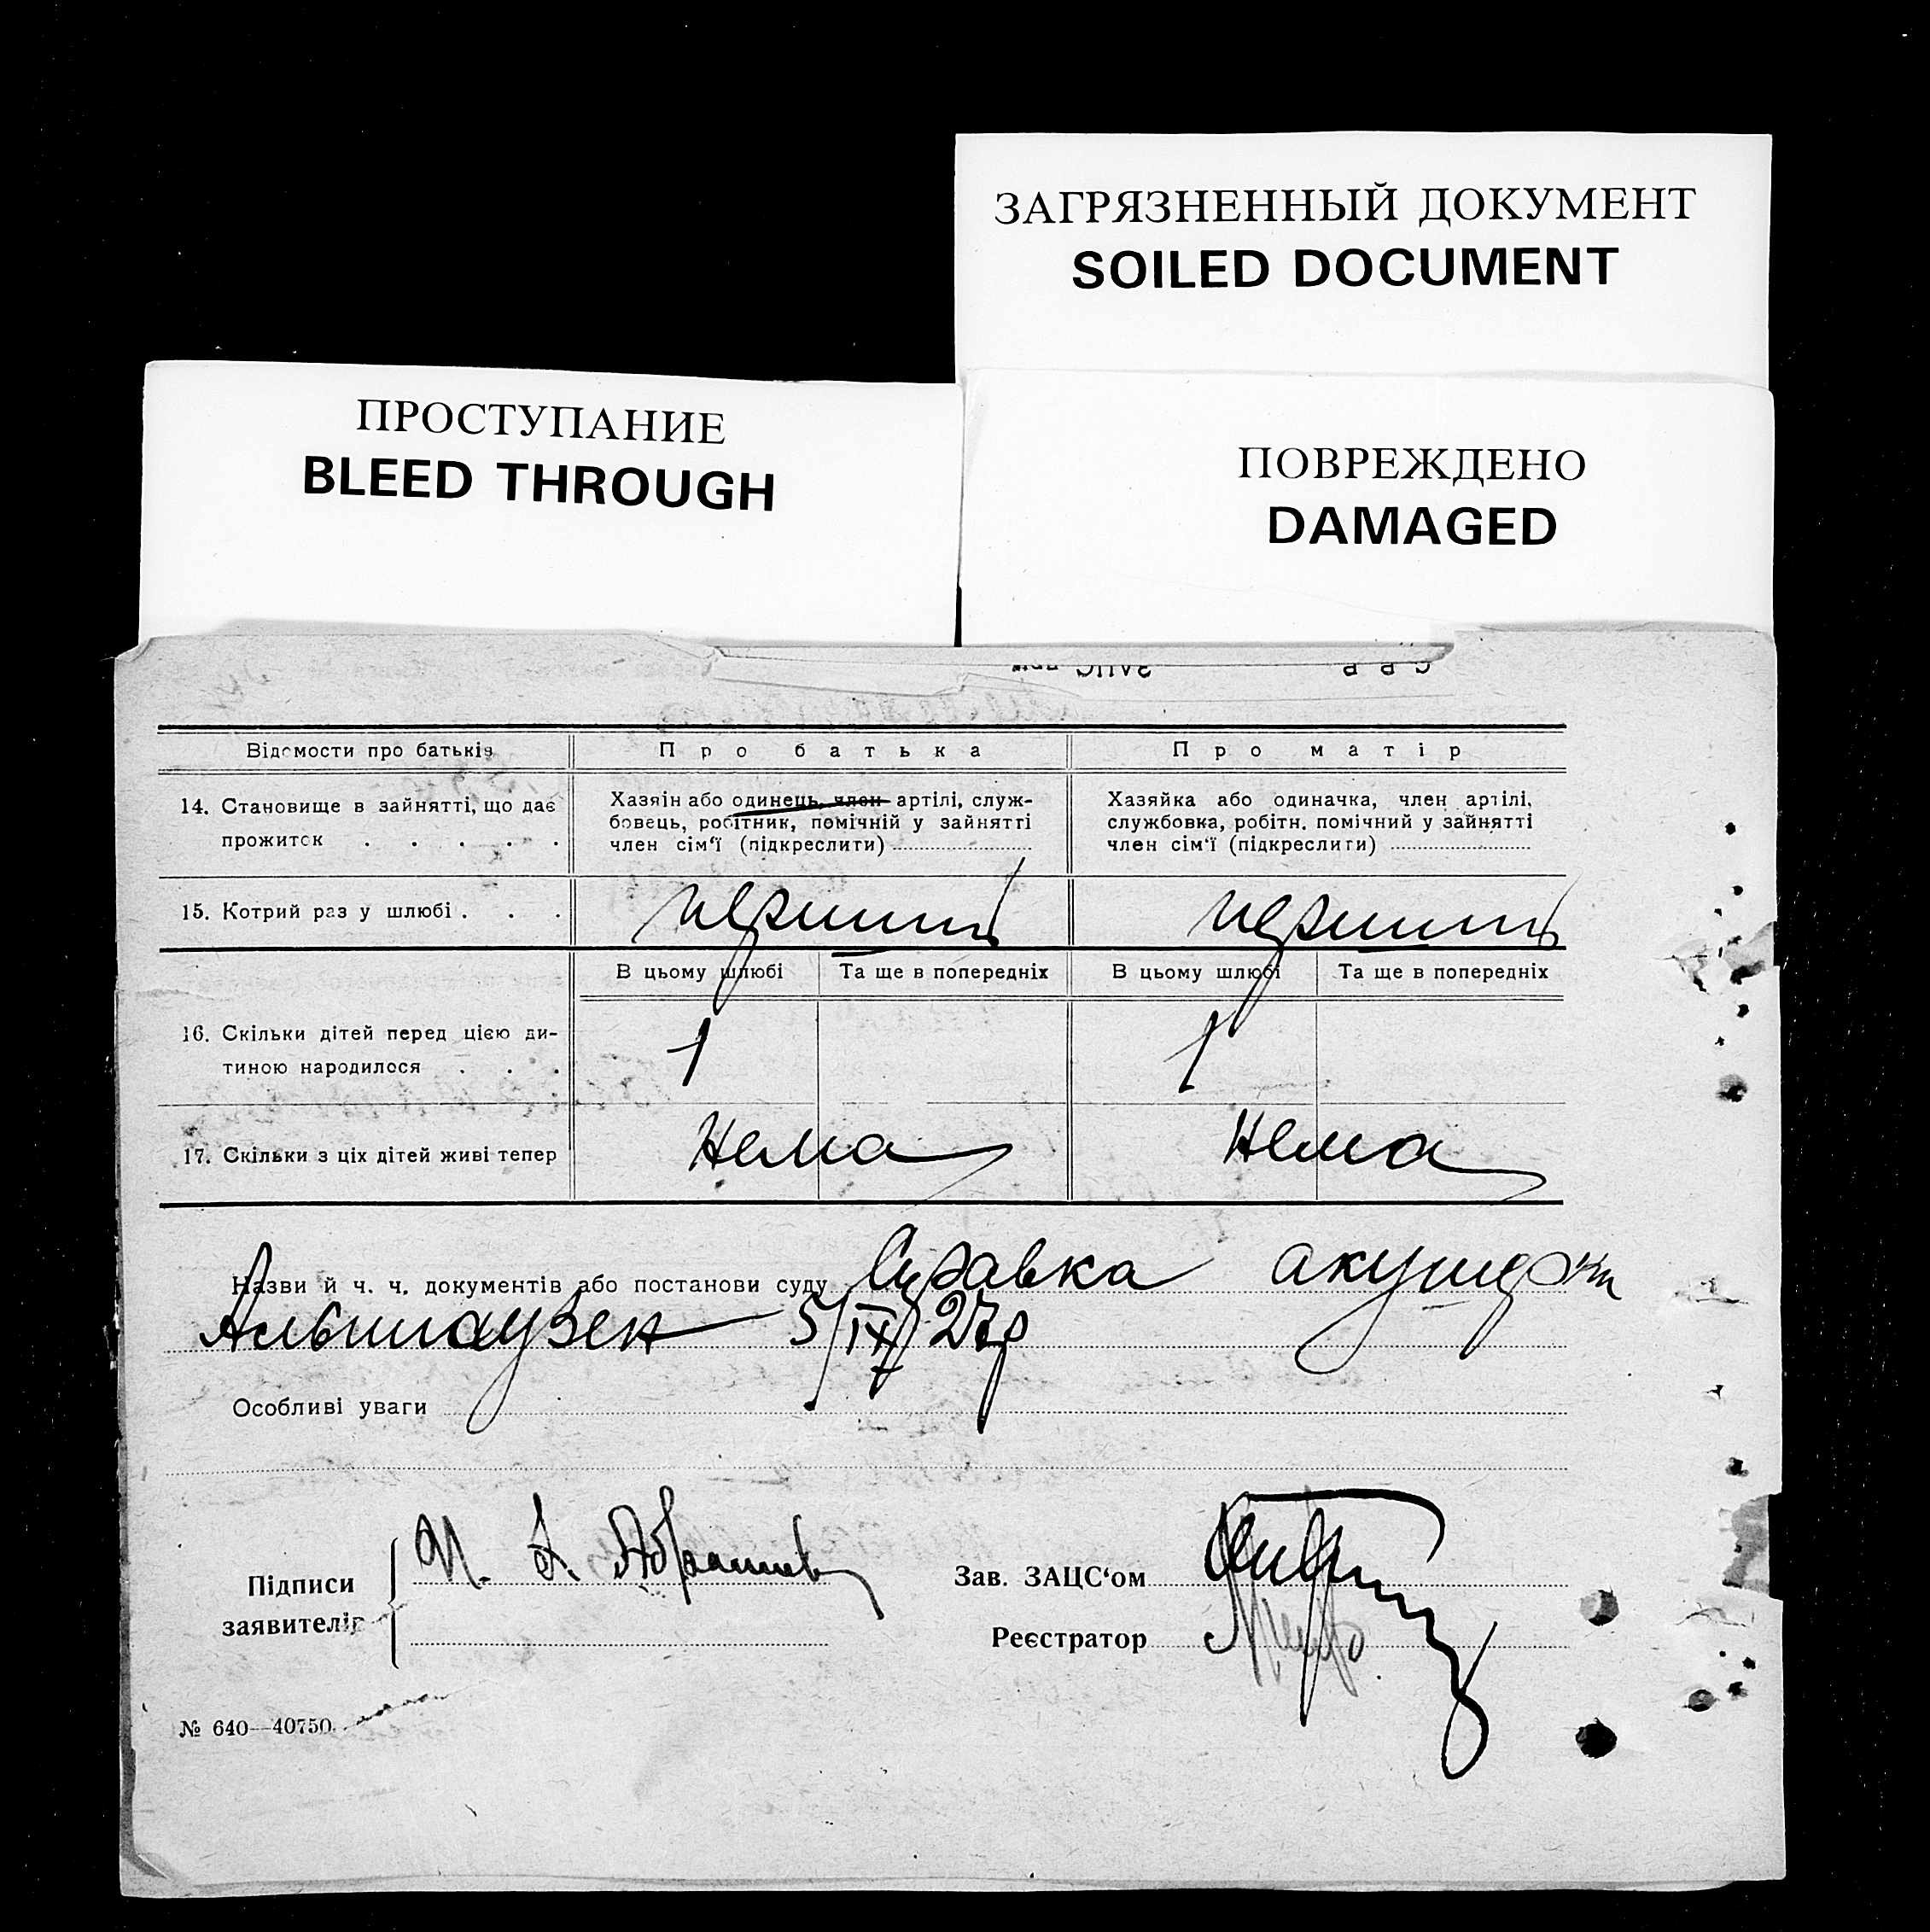 ЗАГРЯЗНЕННЫЙ ДОКУМЕНТ
SOILED DOCUMENT
ПРОСТУПАНИЕ
BLEED THROUGH
ПОВРЕЖДЕНО
DAMAGED
Відомости про батьків
Про батька
Про матір
14. Становище в зайнятті, що дає
прожиток . . . . .
Хазяін або одинець, член артілі, служ-
бовець, робітник, помічній у зайнятті
член сім'ї (підкреслити)
Хазяйка або одиначка, член артілі,
службовка, робітн. помічний у зайнятті
член сім'ї (підкреслити)
15. Котрий раз у шлюбі . . .
перший
перший
В цьому шлюбі
Та ще в попередніх
В цьому шлюбі
Та ще в попередніх
16. Скільки дітей перед цією ди-
тиною народилося . . .
1
1
17. Скільки з ціх дітей живі тепер
Нема
Нема
Назви й ч. ч. документів або постанови суду Справка акушерки
Альтгаузен 5/IX 27р
Особливі уваги
Підписи
заявителів
И. А.
Зав. ЗАЦС'ом
Реєстратор
№ 640—40750.